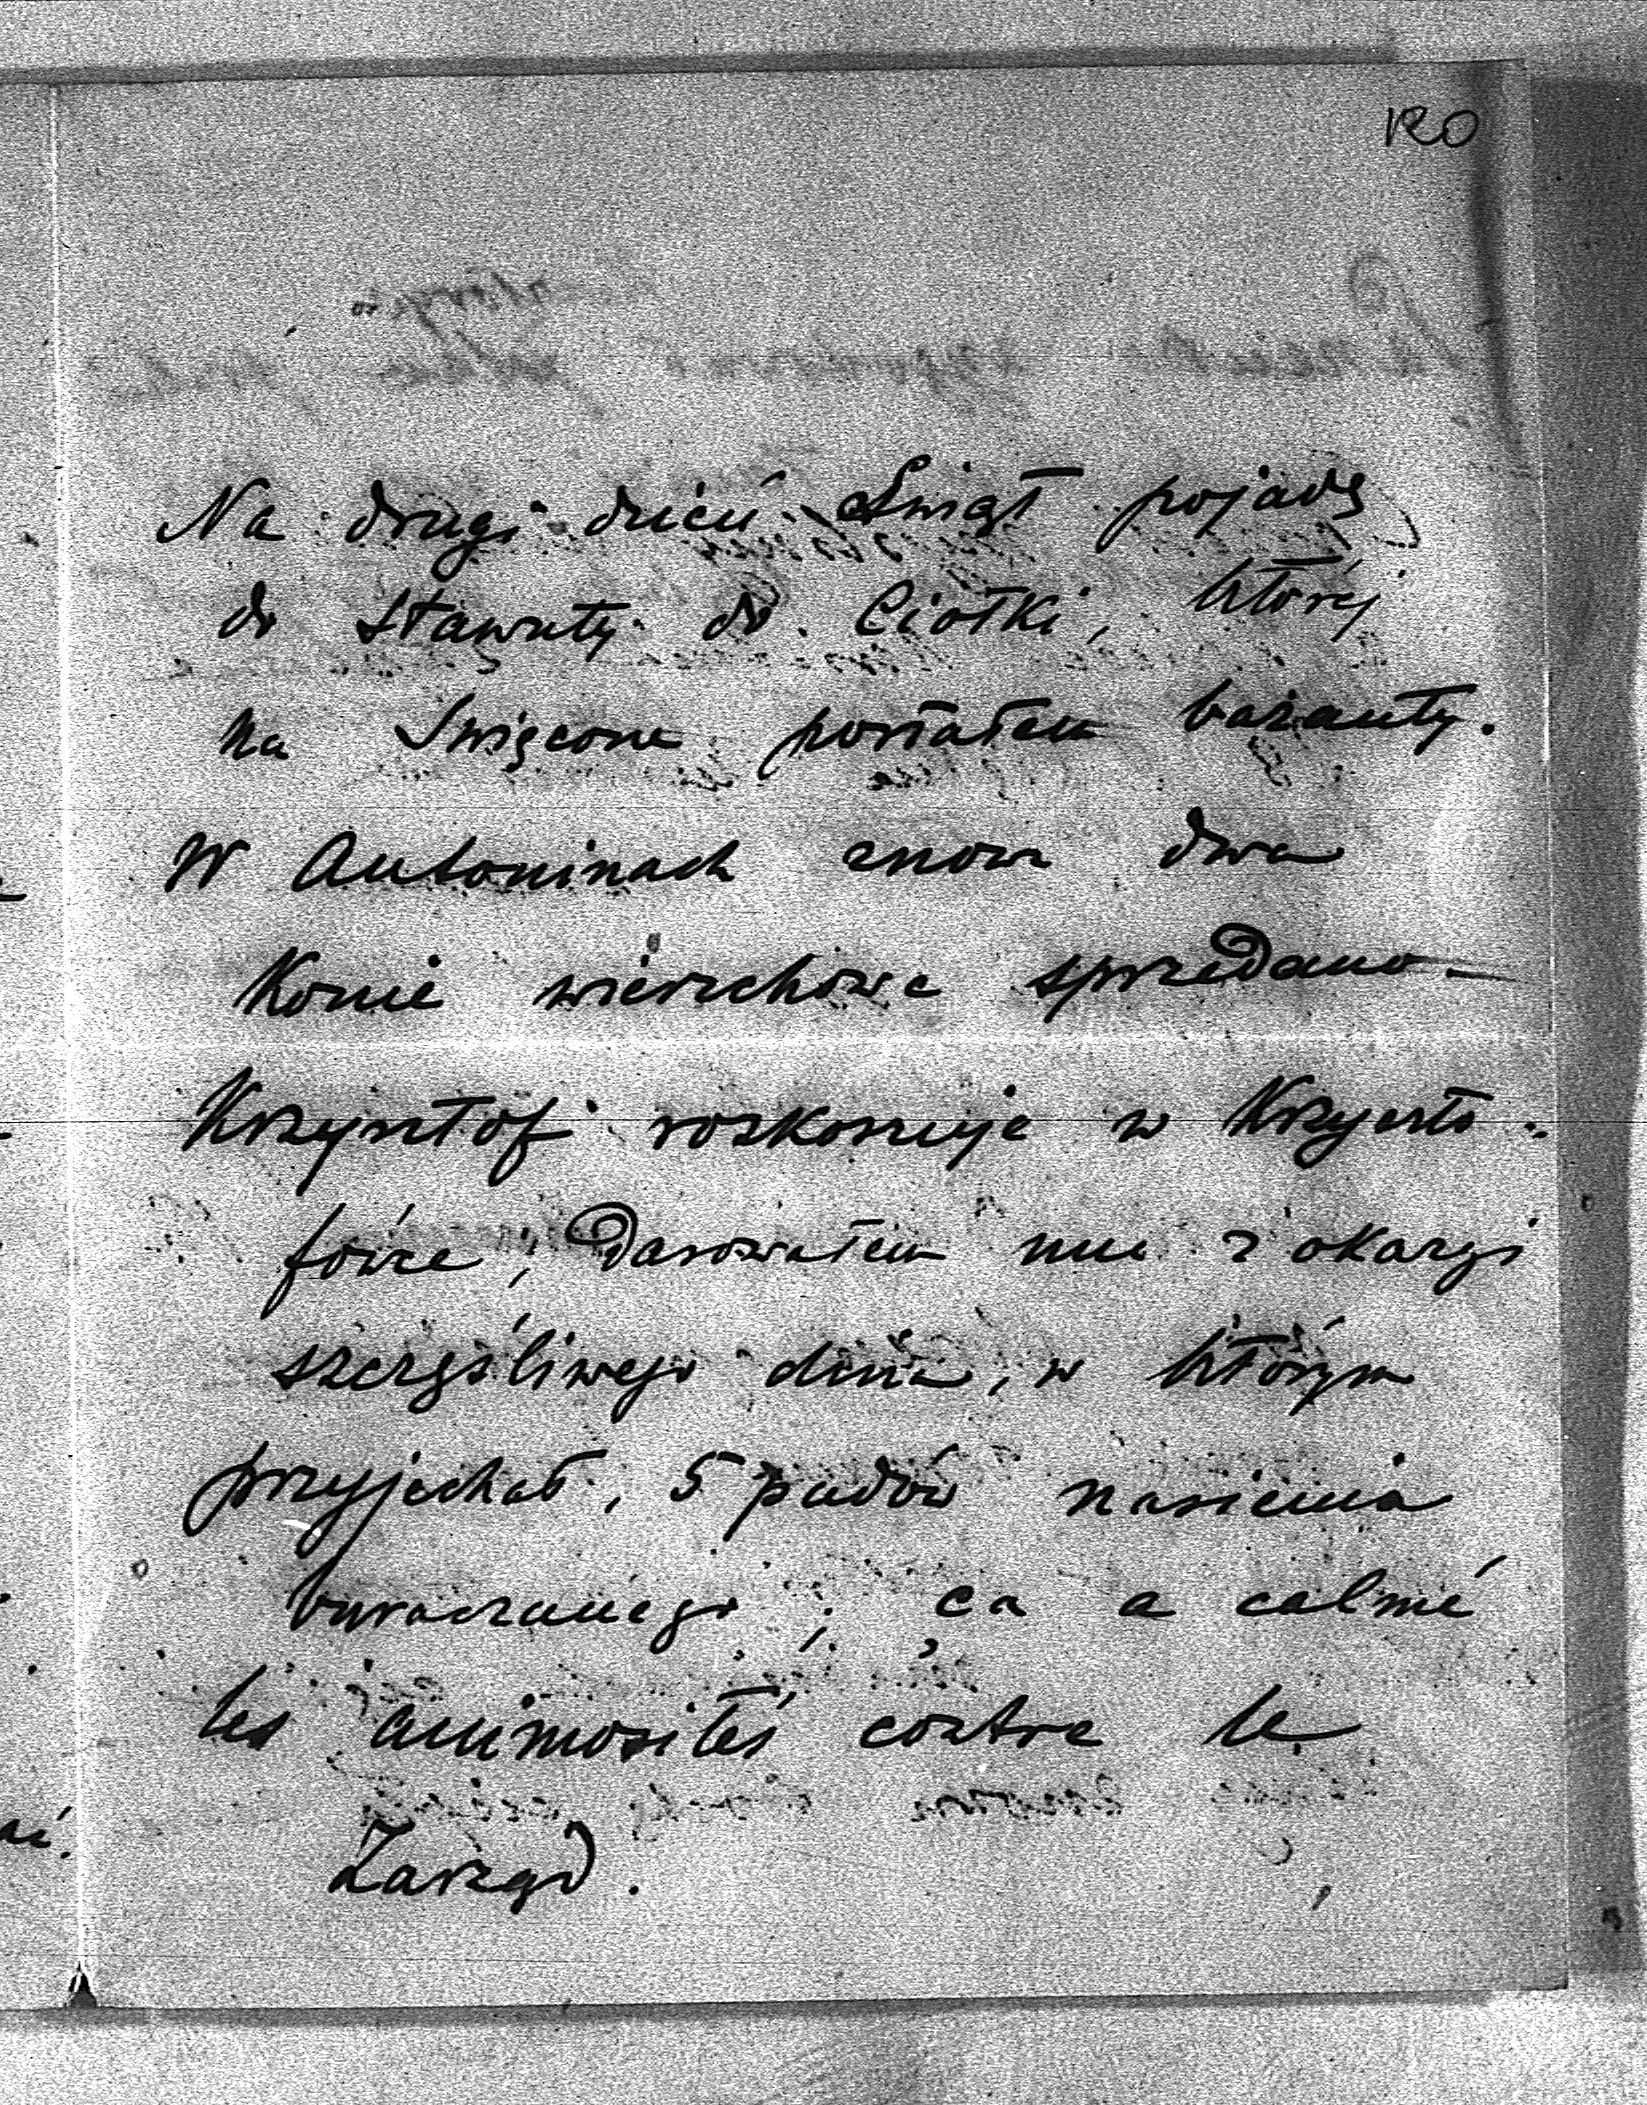 120
Na drugi dzień Świąt pojadę
do Sławuty do Ciotki, której
na Święcone posłałem bażanty.
W Antoninach znowu dwa
Konie wierzchowe sprzedano
Krzysztof rozkoszuje w Krzyszto-
forze, Darowałem mu z okazyi
szczęśliwego dnia, w którym
przyjechał, 5 pudów nasienia
buraczanego; ça a calmé
les animosités contre le
Zarząd.